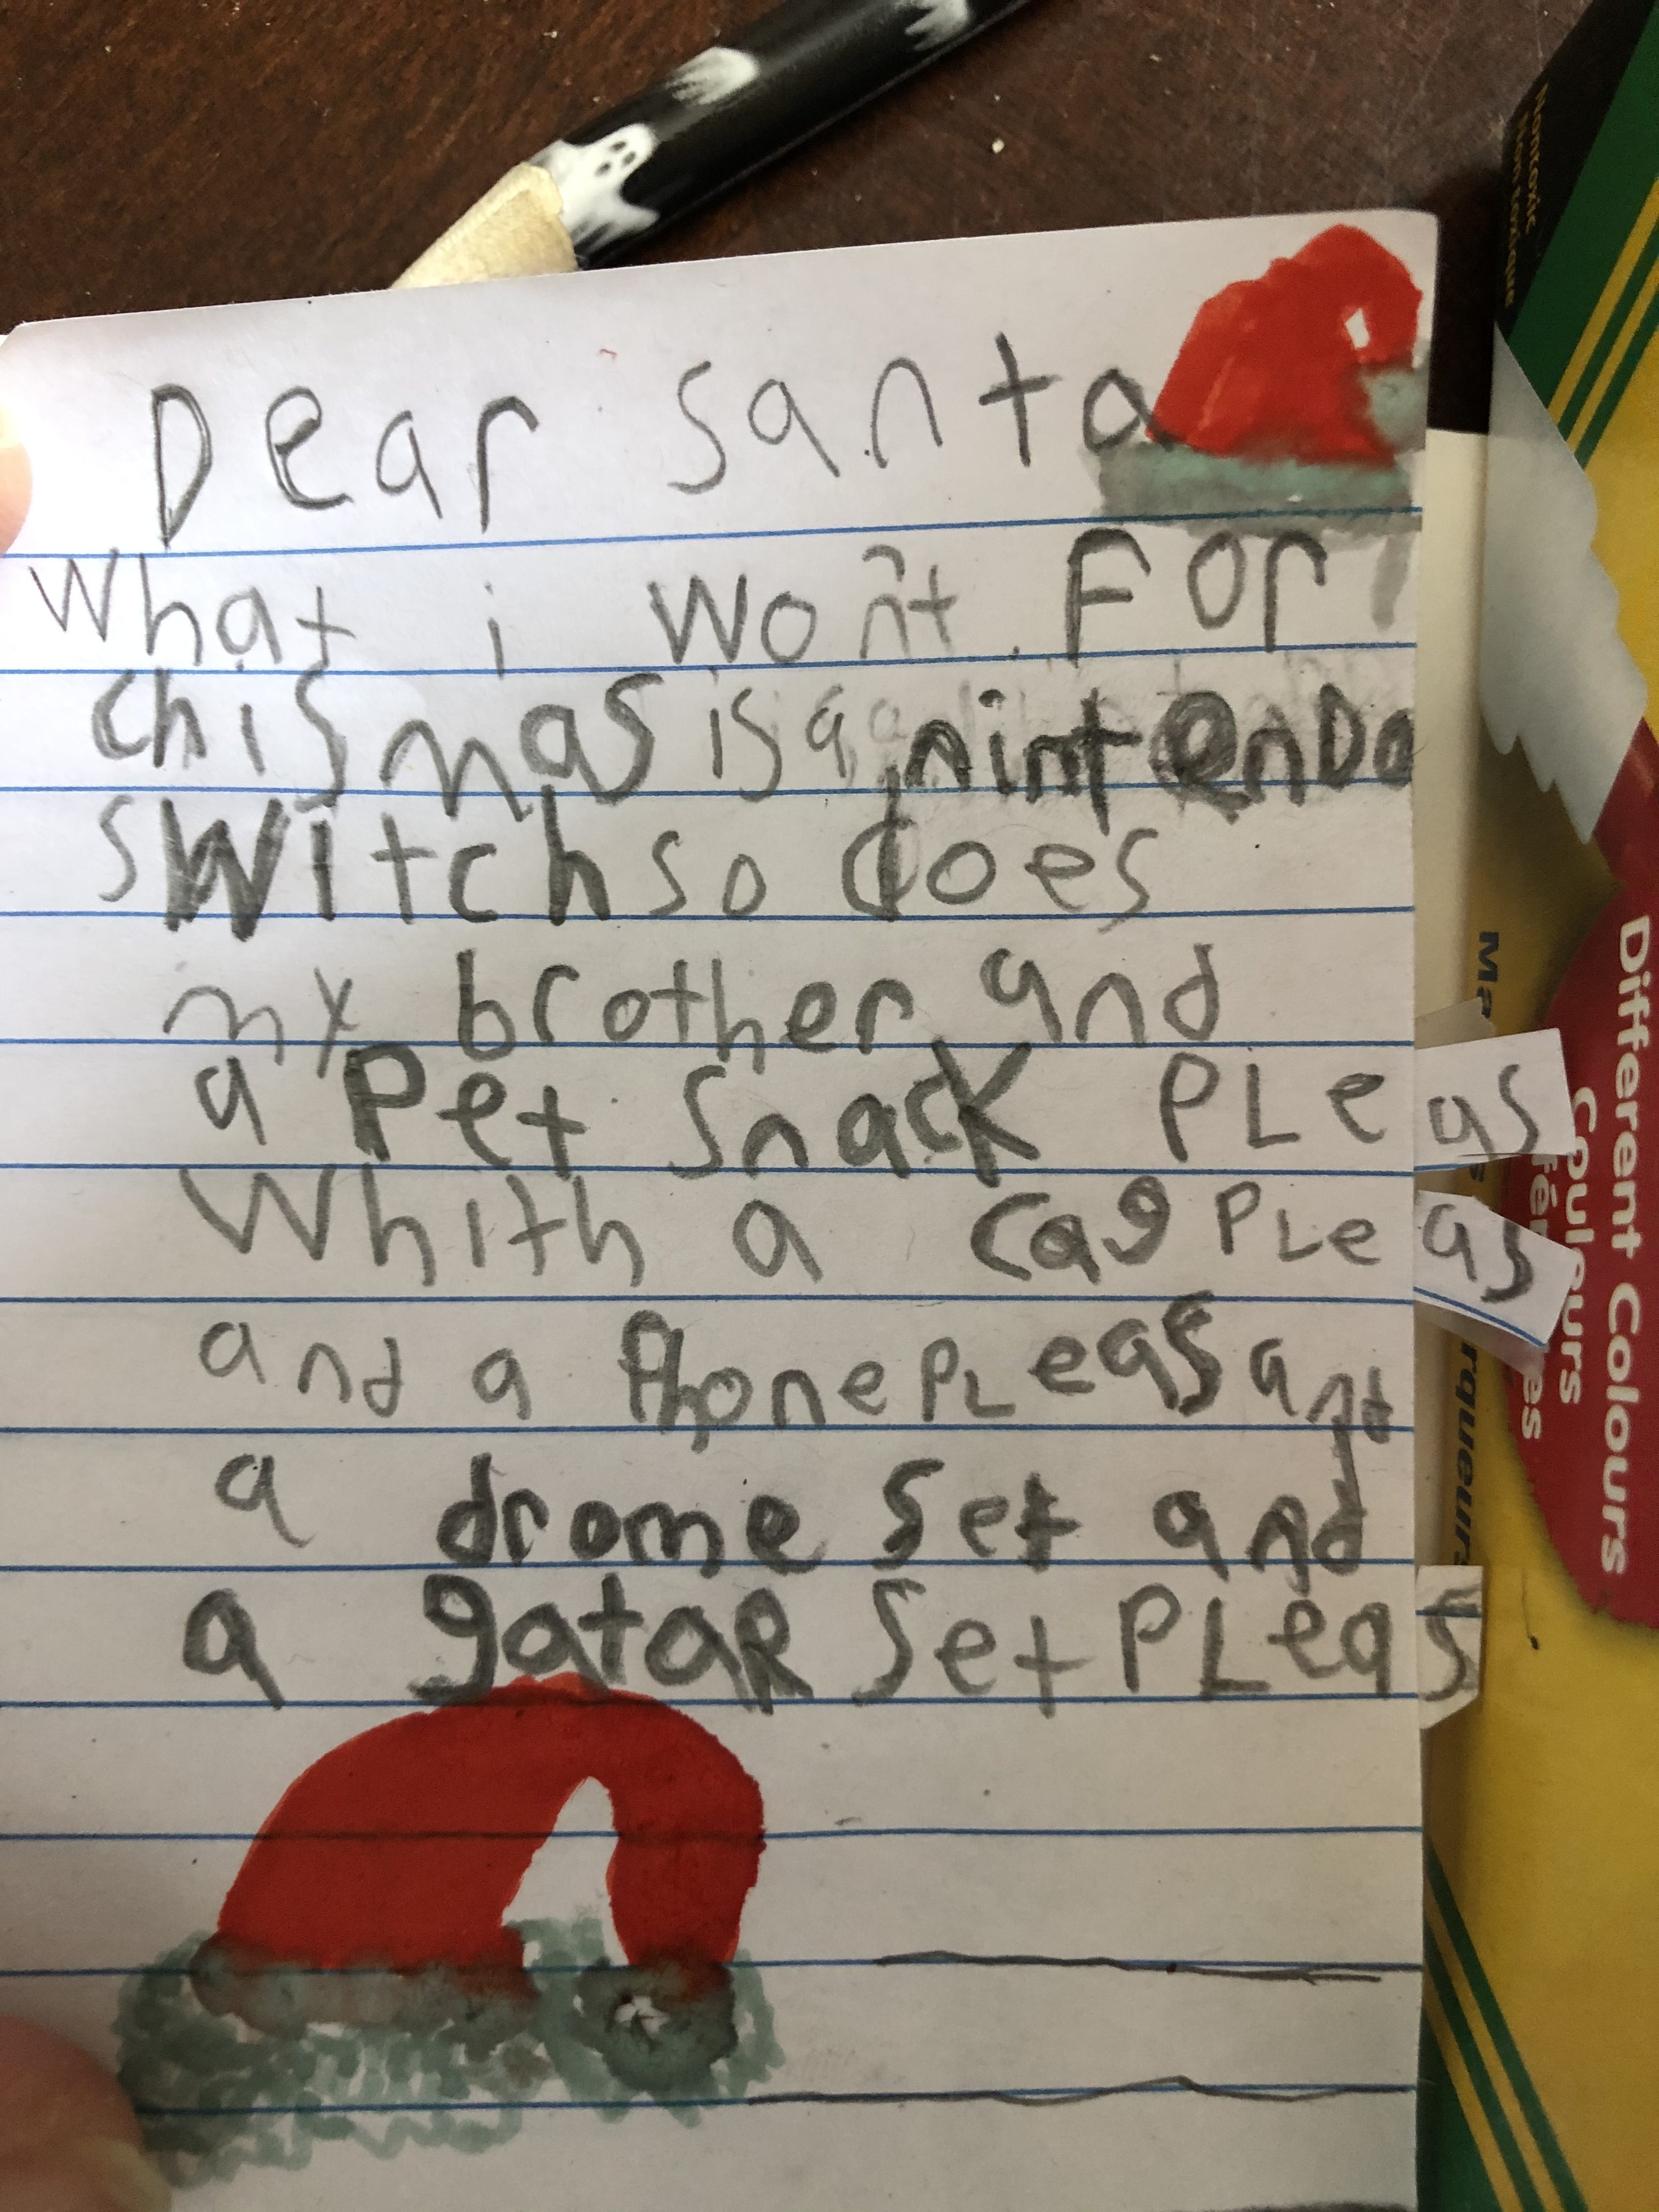 Dear Santa
What i wont For
chismas is a nintenDo
switch so does
my brother and
a Pet snack PLeas
Whith a cag PLeas
and a PhonePLeas and
a drome set and
a gataR set PLeas
Nontoxic
Non toxique
Different Colours
Couleurs